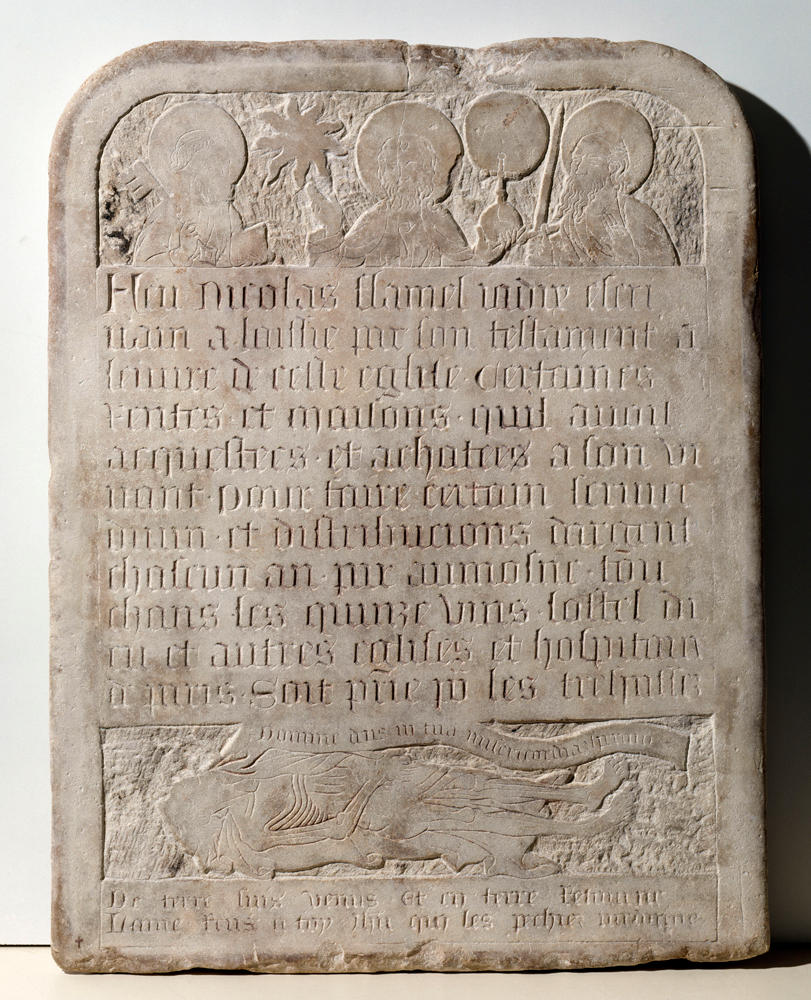 Feu nicolas flamel iadix escri
uain a laissie par son testament a
leuure de ceste eglise · Certaines
rentes et maisons · quil auoit
acquestees · et achatees a son vi
uant · pour faire certain seruice
diuin · et distribucions dargent
chascun an · par aumosne · tōu
chans les quinze vins · lostel di
eu et autres eglises et hospitaux
de paris · Soit prīe pō les trespassez
Domine ds in tua misericordia speraui
De terre suis venus et en terre retourne
Lame rens a toy Jhu qui les pechiez pardonne